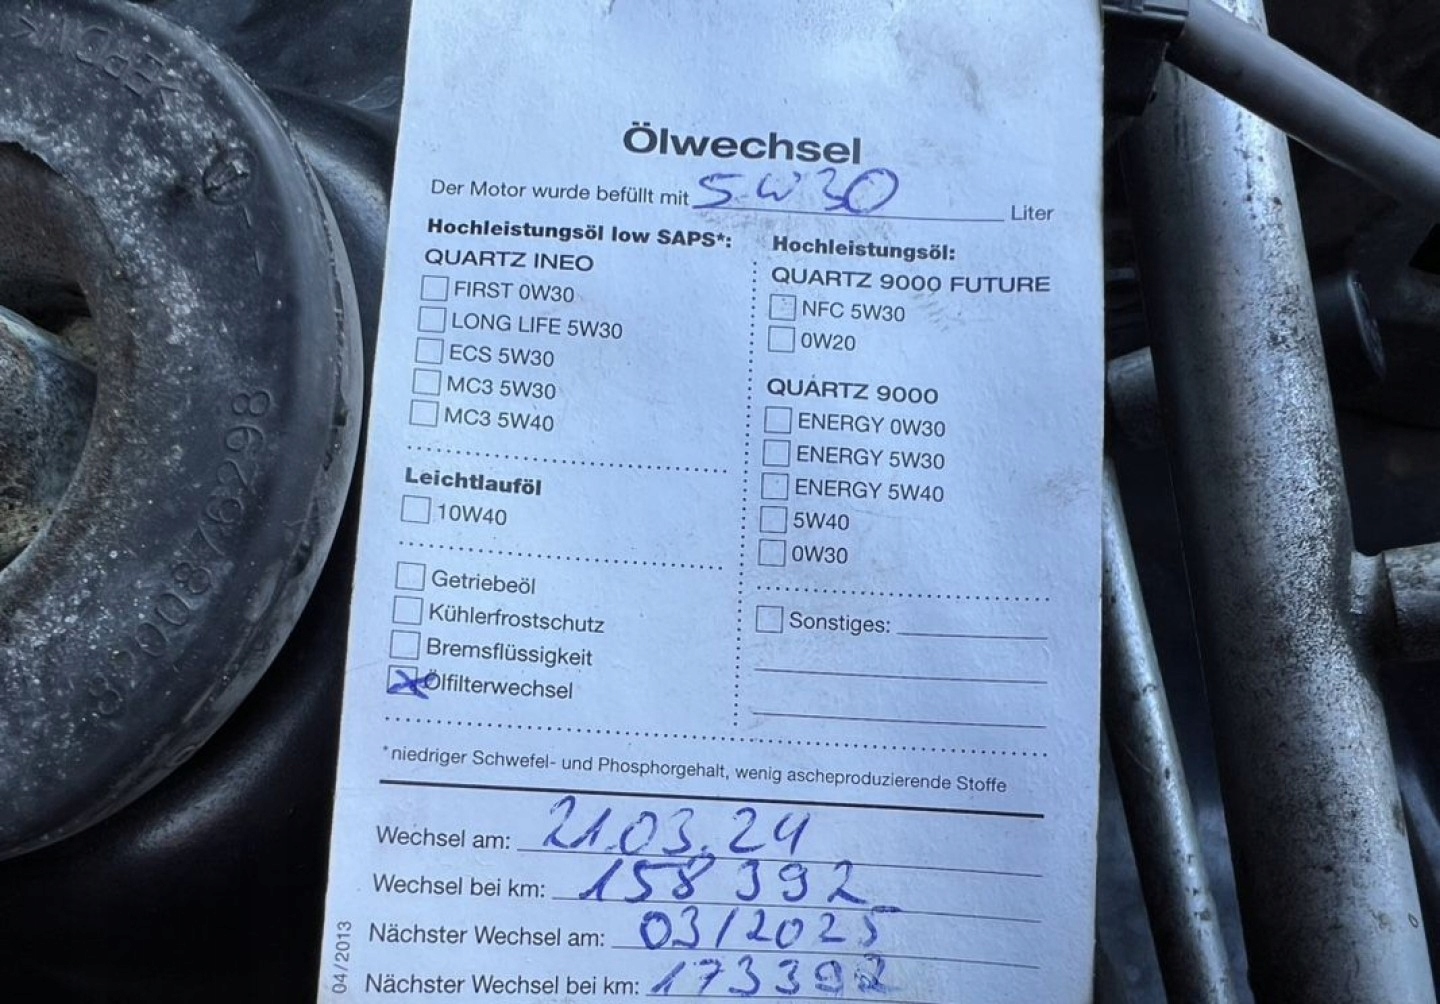 Ölwechsel
Der Motor wurde befüllt mit 5W30 Liter
Hochleistungsöl low SAPS*:
QUARTZ INEO
FIRST 0W30
LONG LIFE 5W30
ECS 5W30
MC3 5W30
MC3 5W40
Leichtlauföl
10W40
Getriebeöl
Kühlerfrostschutz
Bremsflüssigkeit
Ölfilterwechsel
Hochleistungsöl:
QUARTZ 9000 FUTURE
NFC 5W30
0W20
QUARTZ 9000
ENERGY 0W30
ENERGY 5W30
ENERGY 5W40
5W40
0W30
Sonstiges:
*niedriger Schwefel- und Phosphorgehalt, wenig ascheproduzierende Stoffe
Wechsel am: 21.03.24
Wechsel bei km: 158 392
Nächster Wechsel am: 03/2025
Nächster Wechsel bei km: 173392
04/2013
8200876298